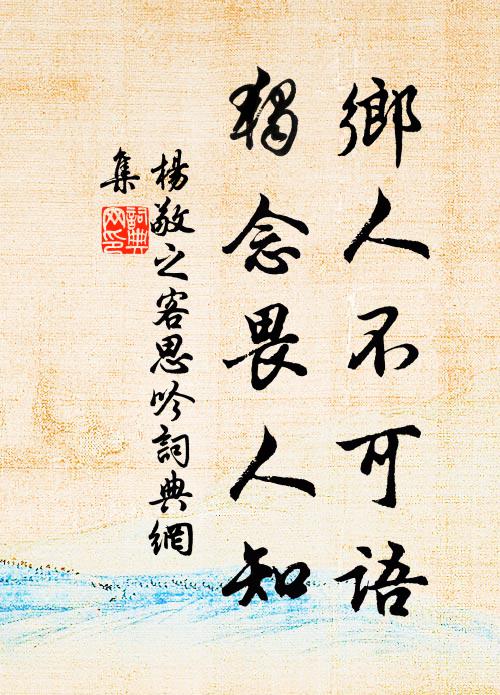 鄉人不可語
獨念畏人知
楊敬之客思吟詞典網
集
詞典
网印